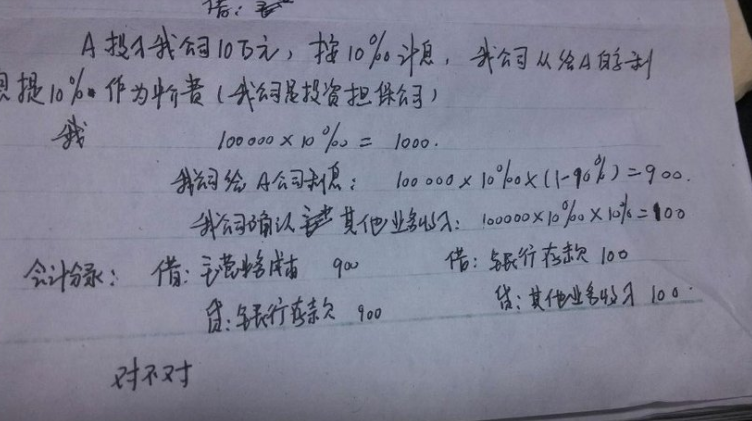 借:
A投入我公司10万元，按10‰计息，我公司从给A的利
息提10%作为中介费（我公司是投资担保公司）
我 100000×10‰=1000.
我公司给A公司利息：100000×10‰×(1-90%)=900.
我公司确认其他业务收入：100000×10‰×10%=100
会计分录：借：主营业务成本 900 借：银行存款 100
贷：银行存款 900 贷：其他业务收入 100.
对不对